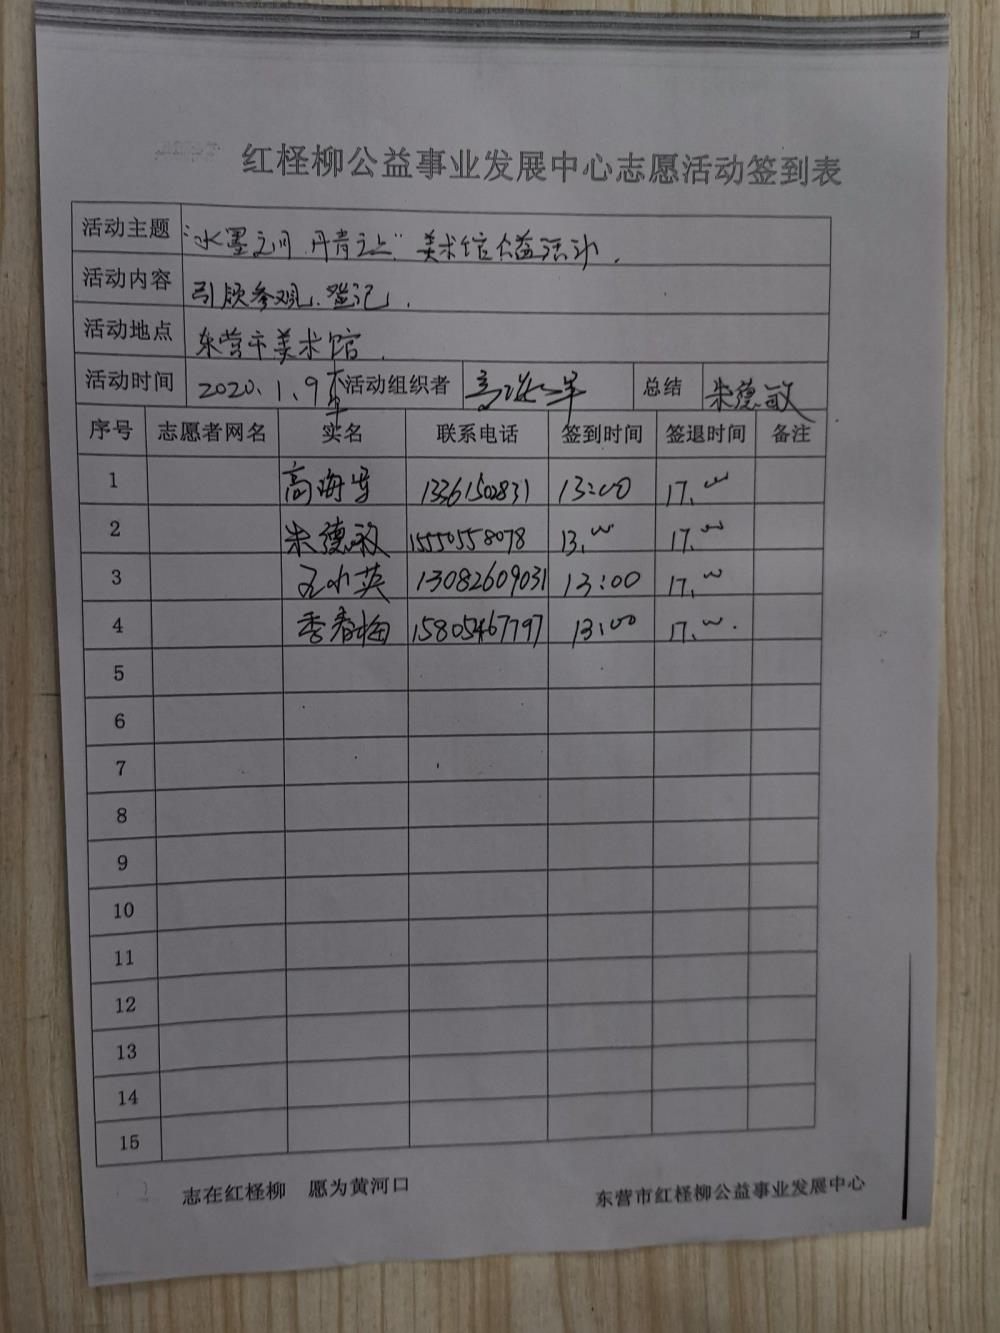 红柽柳公益事业发展中心志愿活动签到表
活动主题 "水墨之间 丹青之上" 美术馆公益活动.
活动内容 引领参观、登记.
活动地点 东营市美术馆.
活动时间 2020.1.9 活动组织者 高海军 总结 朱德敏
序号 志愿者网名 实名 联系电话 签到时间 签退时间 备注
1 高海军 13361502831 13:00 17:00
2 朱德敏 15550558078 13:00 17:00
3 13082609031 13:00 17:00
4 季春梅 15805467797 13:00 17:00.
5
6
7
8
9
10
11
12
13
14
15
志在红柽柳 愿为黄河口
东营市红柽柳公益事业发展中心